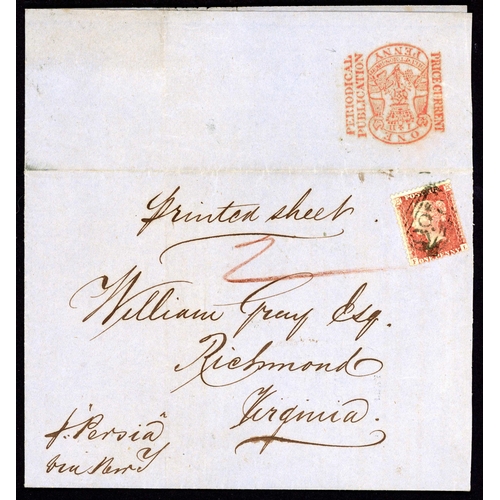 PERIODICAL
PUBLICATION
ONE
PENNY
PRICE CURRENT
Printed sheet
2
William Gray Esq.
Richmond
Virginia.
p. "Persia"
via New Y